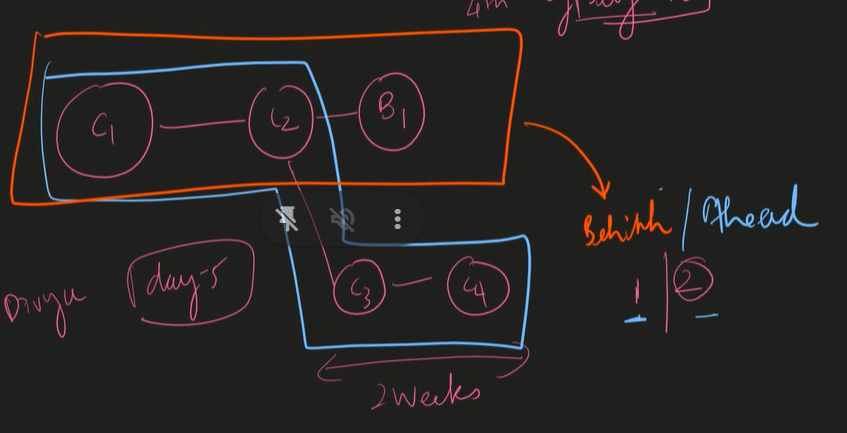 4th
C1 C2 B1
Behinh / Ahead
1 | 2
Divya day-5 C3 C4
2 Weeks